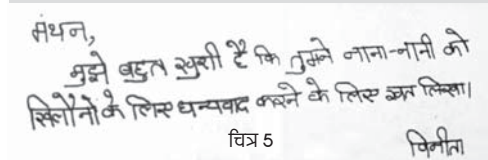 मंथन,
मुझे बहुत खुशी है कि तुमने नाना-नानी को
खिलौनों के लिए धन्यवाद करने के लिए खत लिखा।
चित्र 5
विनीता